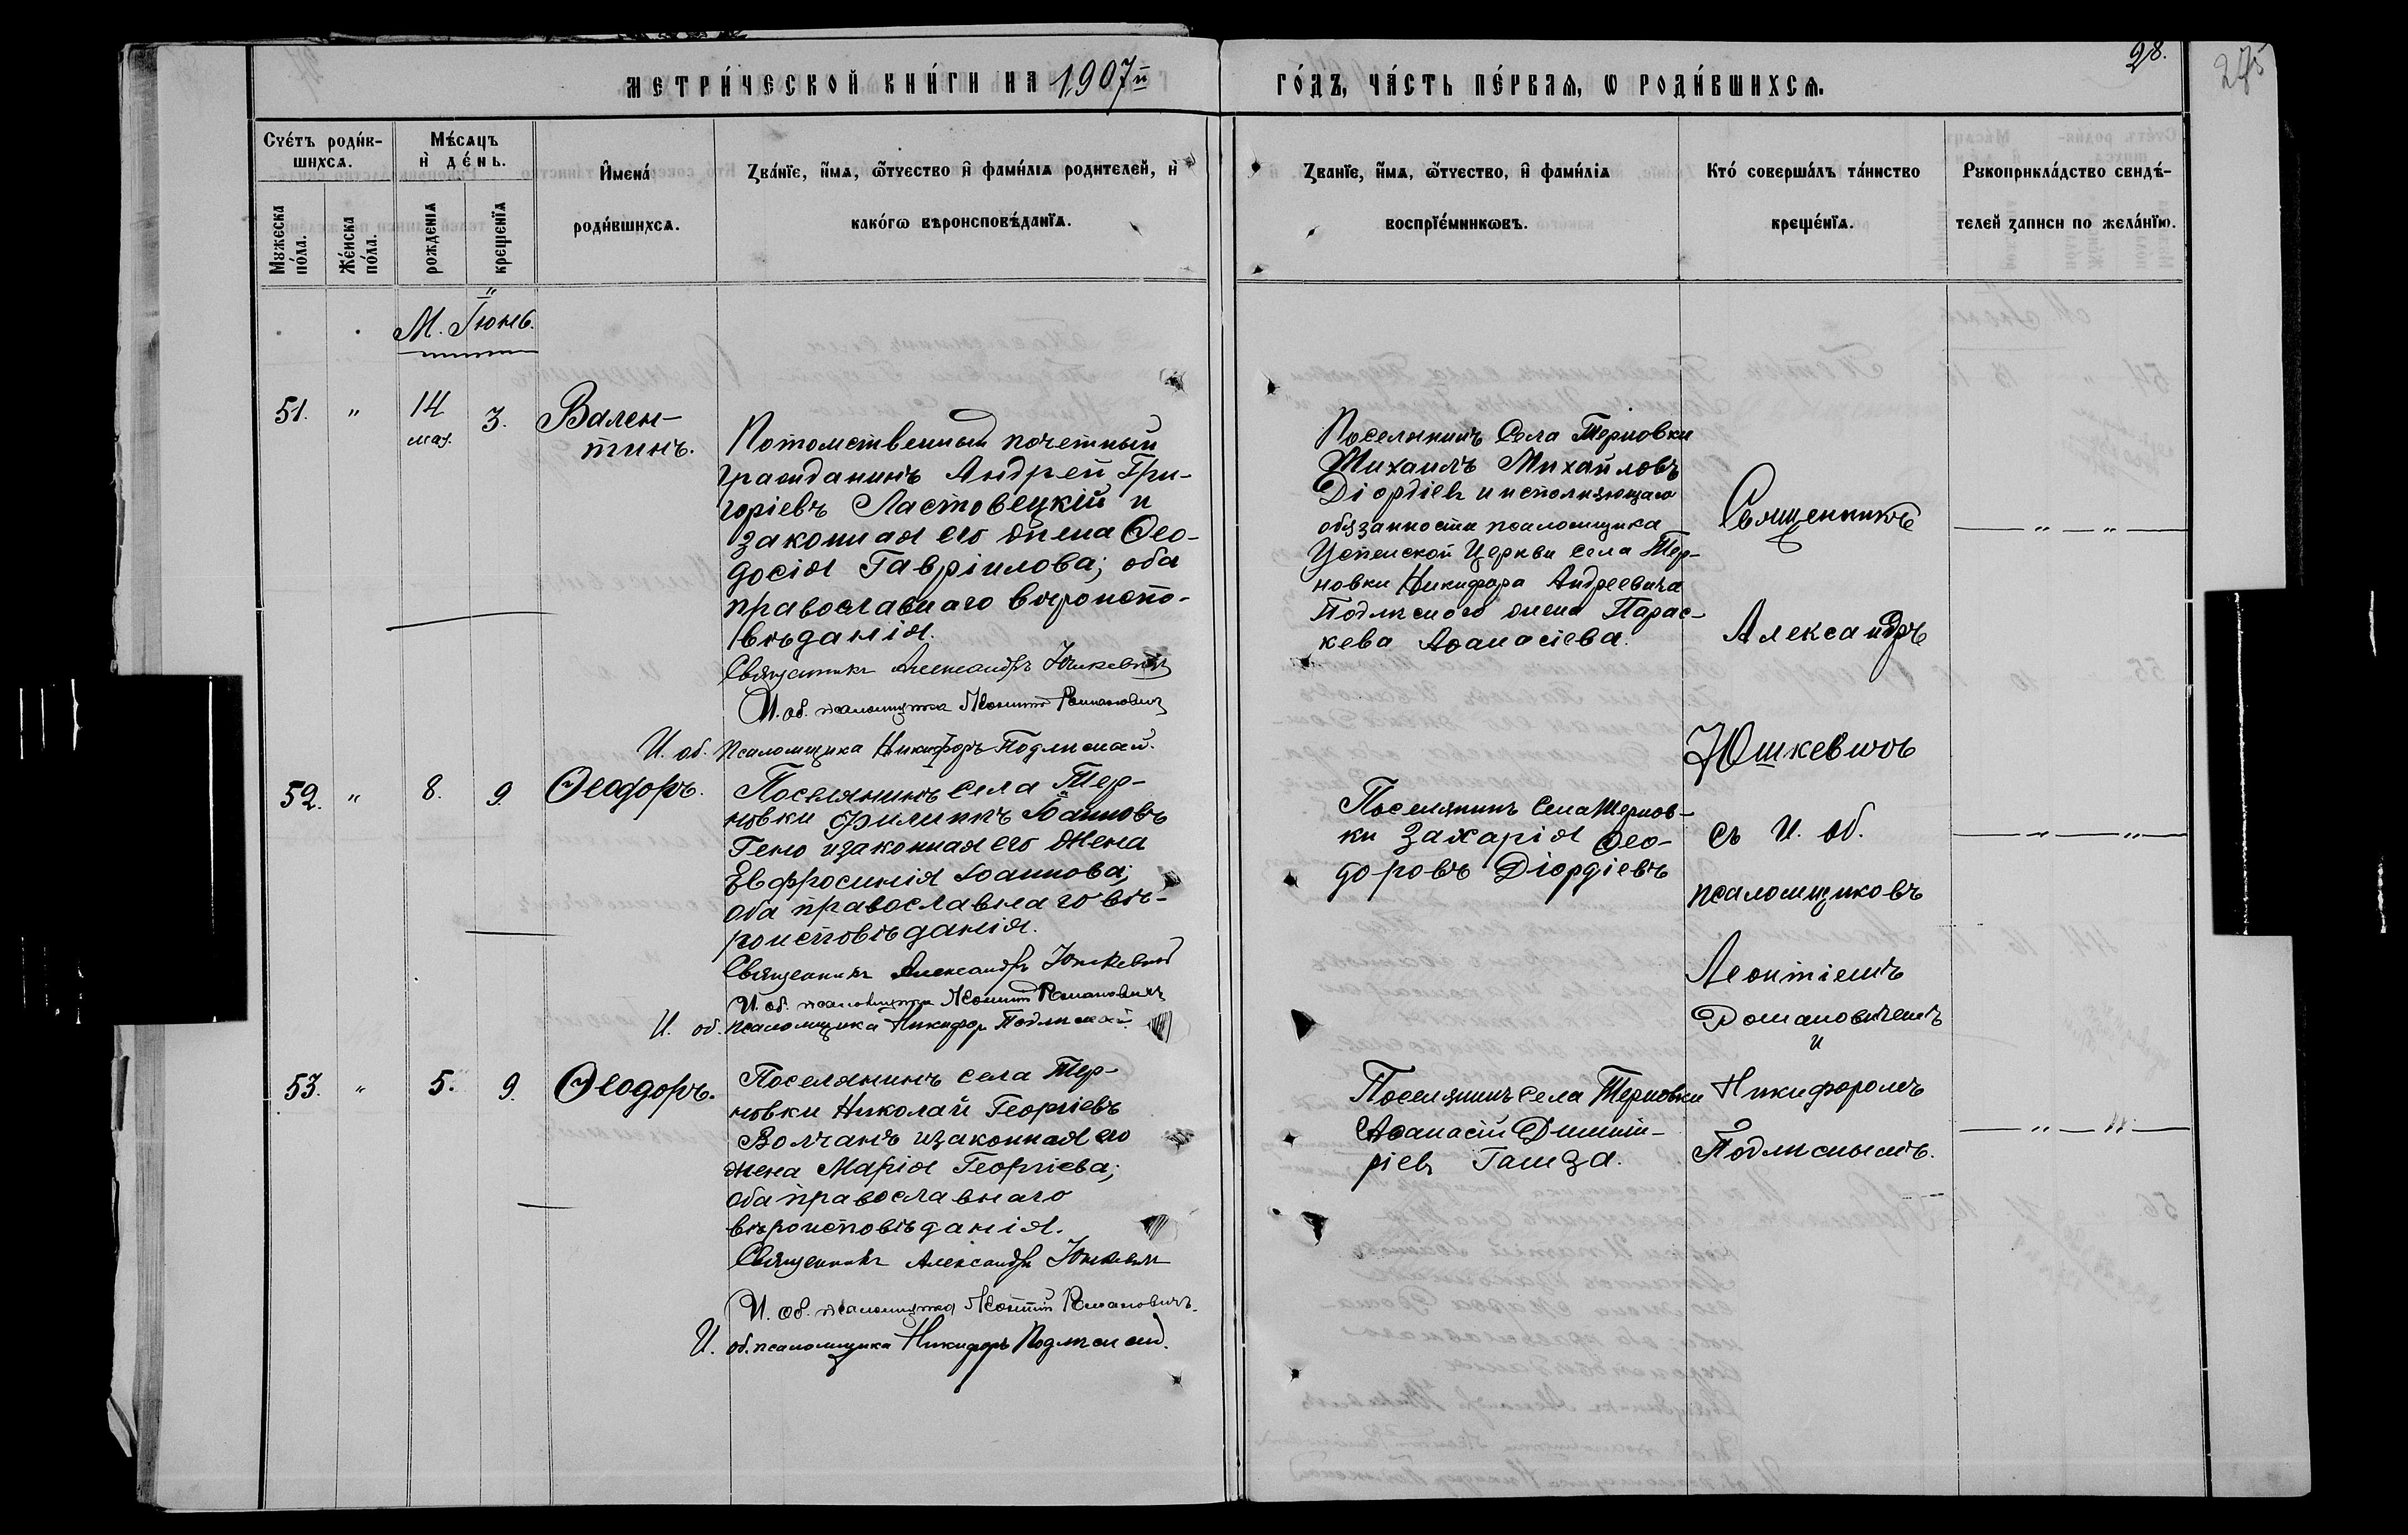 28.
275
МЕТРИ́ЧЕСКОЙ КНИ́ГИ НА 1907й
ГО́ДЪ, ЧА́СТЬ ПЕ́РВАѦ, Ѡ РОДИ́ВШИХСѦ.
Сче́тъ роди́в-
шихсѧ.
Мꙋжеска по́ла.
Же́нска по́ла.
Мѣ́сѧцъ
и҆ де́нь.
рожденїѧ
крещенїѧ
И҆мена́
роди́вшихсѧ.
Зва́нїе, и҆́мѧ, ѻ҆́тчество и҆ фами́лїѧ родителей, и҆
како́гѡ вѣроисповѣ́данїѧ.
Зва́нїе, и҆́мѧ, ѻ҆́тчество, и҆ фами́лїѧ
воспрїе́мникѡвъ.
Кто́ соверша́лъ та́инство
креще́нїѧ.
Рꙋкоприкла́дство свидѣ́-
телей записи по жела́нїю.
М. Іюнь.
51. " 14 мая. 3. Вален-
тинъ.
Потомственный почетный
гражданинъ Андрей Гри-
горіевъ Ластовецкій и
законная его жена Ѳео-
досія Гавріилова; оба
православнаго вѣроиспо-
вѣданія.
Священникъ Александръ Юшкевичъ
И. об. псаломщика Леонтій Романовичъ
И. об. псаломщика Никифоръ Подлисный.
Поселянинъ села Терновки
Михаилъ Михайловъ
Діордіевъ и исполняющаго
обязанности псаломщика
Успенской Церкви села Тер-
новки Никифора Андреевича
Подлисного жена Парас-
кева Аѳанасіева.
52. " 8. 9. Ѳеодоръ.
Поселянинъ села Тер-
новки Филиппъ Іоанновъ
Гено и законная его жена
Евфросинія Іоаннова;
оба православнаго вѣ-
роисповѣданія.
Священникъ Александръ Юшкевичъ
И. об. псаломщика Леонтій Романовичъ
И. об. псаломщика Никифоръ Подлисный.
Поселянинъ села Тернов-
ки Захарія Ѳео-
доровъ Діордіевъ
53. " 5. 9. Ѳеодоръ.
Поселянинъ села Тер-
новки Николай Георгіевъ
Волчанъ и законная его
жена Марія Георгіева;
оба православнаго
вѣроисповѣданія.
Священникъ Александръ Юшкевичъ
И. об. псаломщика Леонтій Романовичъ.
И. об. псаломщика Никифоръ Подлисный.
Поселянинъ села Терновки
Аѳанасій Димит-
ріевъ Гамза.
Священникъ
Александръ
Юшкевичъ
съ И. об.
псаломщиковъ
Леонтіемъ
Романовичемъ
и
Никифоромъ
Подлиснымъ.
— " — " —
— " — " —
— " — " —